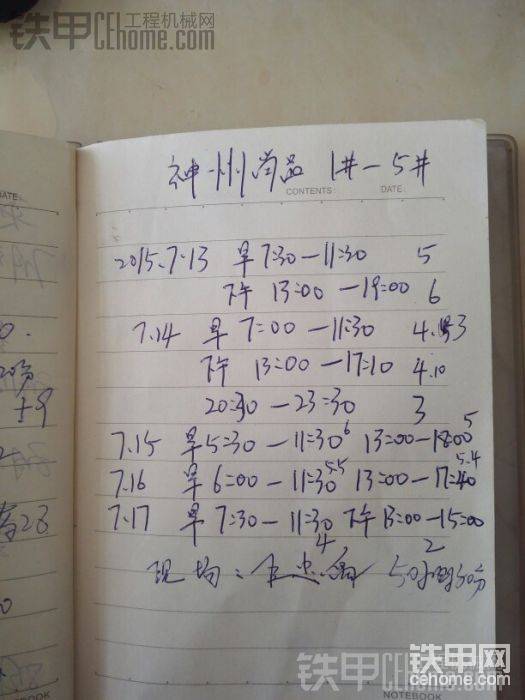 铁甲 工程机械网
CEhome.com
神州尚品 1#-5#
DATE:
CONTENTS: DATE:
2015.7.13 早7:30-11:30 5
下午 13:00-19:00 6
7.14 早 7:00-11:30 4.3
下午 13:00-17:10 4.10
20:30-23:30 3
7.15 早5:30-11:30 6 13:00-18:00 5
7.16 早6:00-11:30 5.5 13:00-17:40 5.4
7.17 早 7:30-11:30 4 下午 13:00-15:00 2
现场: 5小时30分
20分
19
28
NOTEBOOK
NOTEBOOK
铁甲 工程机械网
CEhome.com
铁甲网
cehome.com